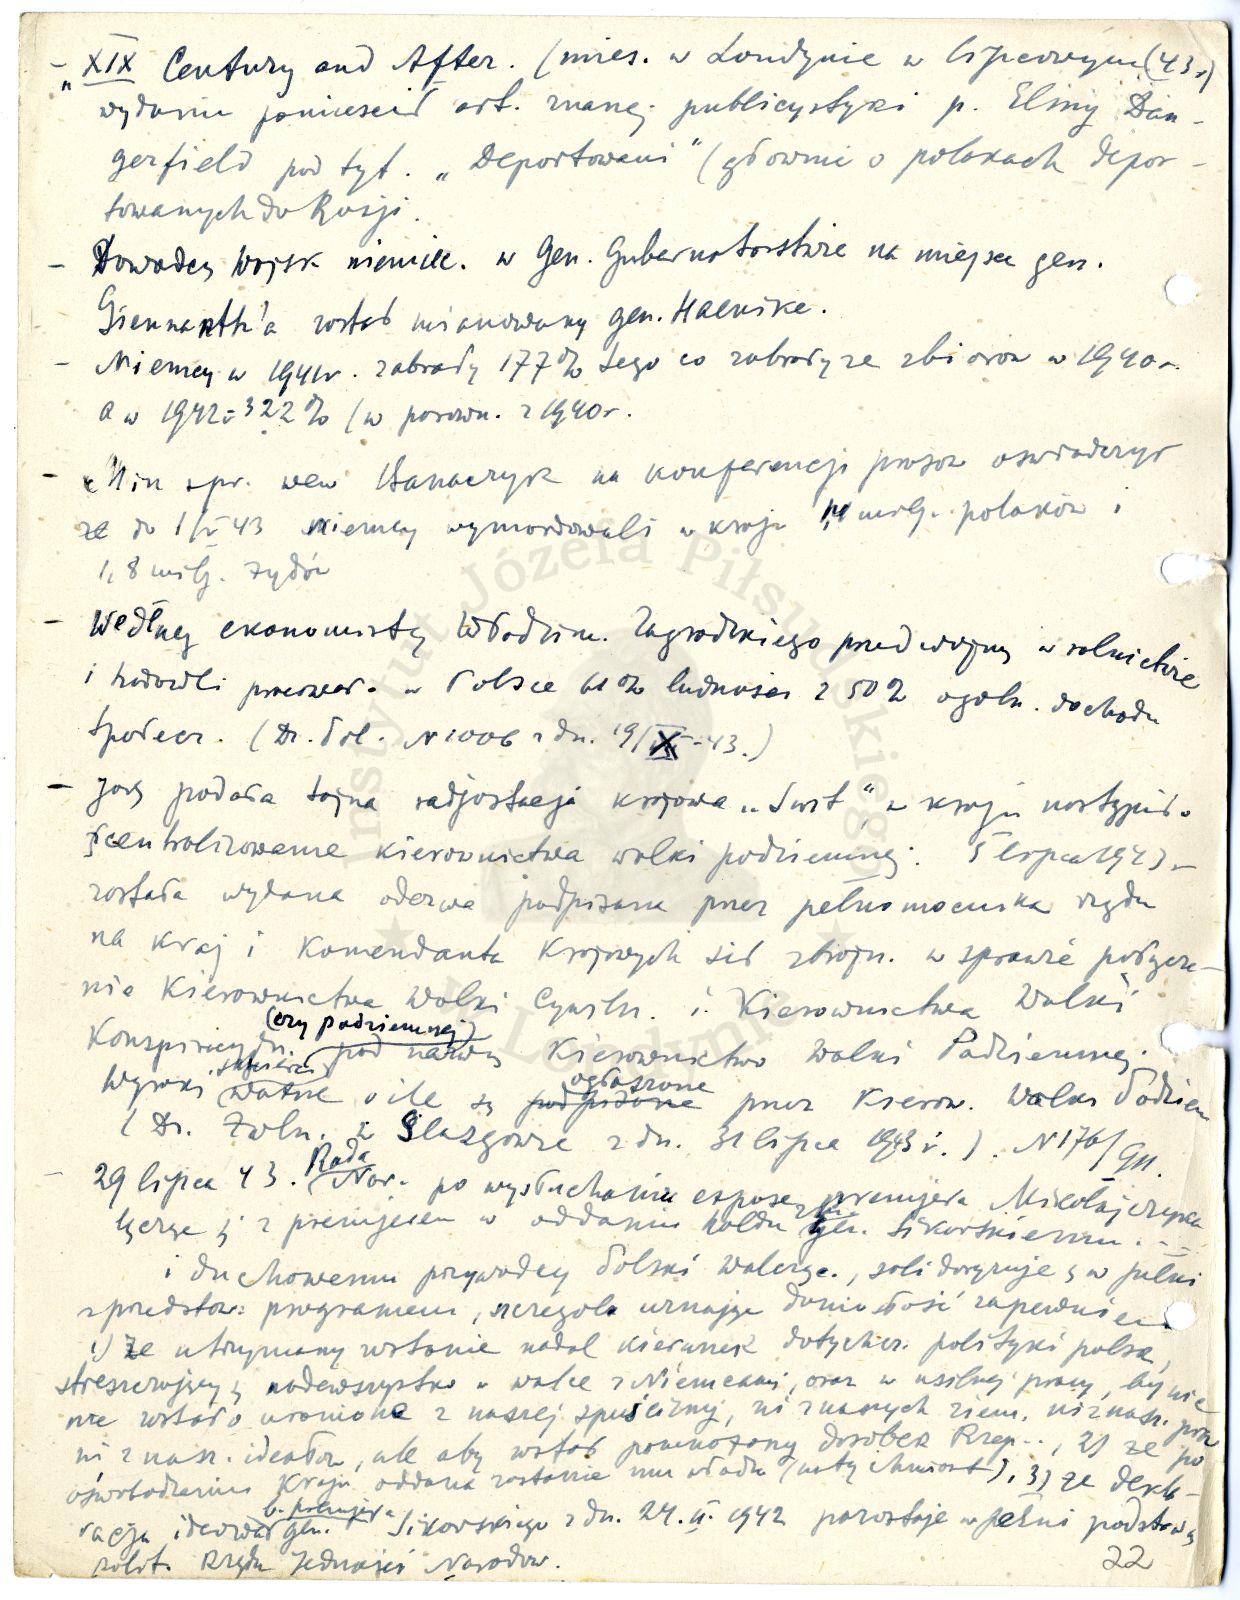 - „XIX Century and After. (mies. w Londynie w lipcowym (43 r)
wydaniu pomieścił art. znanej publicystyki p. Elmy Dan-
gerfield pod tyt. „Deportowani" (głównie o polakach depor-
towanych do Rosji.
- Dowódcą Wojsk niemiec. w Gen. Gubernatorstwie na miejsce gen.
Giennarth'a został mianowany gen. Haenike.
- Niemcy w 1941 r. zabrały 177% tego co zabrały ze zbiorów w 1940 r.
a w 1942 - 322% (w porown. z 1940 r.
- Min spr. wew Banaczyk na konferencji prasow oświadczył
że do 1/V 43 niemcy wymordowali w kraju milj. polaków i
1,8 milj. żydów
- Według ekonomisty Włodzim. Zagrodzkiego przed wojną w rolnictwie
i hodowli pracował. w Polsce 61% ludności z 50% ogóln. dochodu
społecz. (Dz. Pol. N 1006 z dn. 19/X-43.)
- Jak podała tajna radjostacja krajowa „Świt", w kraju nastąpił.
scentralizowanie kierownictwa walki podziemnej. 5 lipca 1943 r
została wydana odezwa podpisana przez pełnomocnika rządu
na kraj i Komendanta Krajowych sił zbrojn. w sprawie połącze-
nia Kierownictwa Walki Cywiln. i Kierownictwa Walki
(czy podziemnej)
Konspiracyjn. pod nazwą Kierownictwo Walki Podziemnej.
śmierci ogłoszone
Wyroki ważne o ile są podpisane przez Kierow. Walki Podziem
(Dz. Żołn. z Glazgowie z dn. 31 lipca 1943 r.). N 176/Gn.
- 29 lipca 43. Rada Nar. po wysłuchaniu expose premjera Mikołajczyka
łączę się z premjerem w oddaniu hołdu gen. Sikorskiemu...
i duchowemu przywódcy Polski walczą., solidaryzuje się w pełni
z przedstaw. programem, szczególn uznając doniosłość zapewnień
1) że utrzymany zostanie nadal kierunek dotychcz. polityki polsk,
streszczający się nadewszystko w walce z Niemcami, oraz w usilnej pracy, by nic
nie zostało uronione z naszej spuścizny, ni z naszych ziem. ni z nasz. praw
ni z nasz. ideałów, ale aby został pomnożony dorobek Rzep.., 2) że po
oświobodzeniu Kraju oddana zostanie mu władza (natychmiast), 3) że dekla-
b. premjera
racja ideowa gen. Sikorskiego z dn. 24.II.1942 pozostaje w pełni podstawą
robot. Rządu Jedności Narodow.
22
Instytut Józefa Piłsudskiego
w Londynie